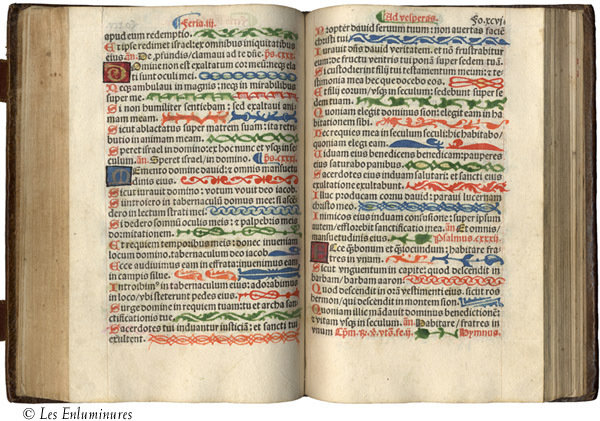 Feria.iii.
apud eum redemptio.
Et ipse redimet israel: ex omnibus iniquitatibus
eius. añ. De p̃fundis/clamaui ad te dñe. p̃s. cxxx.
Domine non est exaltatum cor meum: neq̃ ela
ti sunt oculi mei.
Neq̃ ambulaui in magnis: neq̃ in mirabilibus
super me.
Si non humiliter sentiebam: sed exaltaui ani
mam meam.
Sicut ablactatus super matrem suam: ita retri
butio in animam meam.
Speret israel in domino: ex hoc nunc et vsq̃ in se
culum. añ. Speret israel/in domino. p̃s. cxxxi.
Memento domine dauid: et omnis mansuetu
dinis eius.
Sicut iurauit domino: votum vouit deo iacob.
Si introiero in tabernaculũ domus mee: si ascen
dero in lectum strati mei.
Si dedero somnũ oculis meis: et palpebris meis
dormitationem.
Et requiem temporibus meis: donec inueniam
locum domino. tabernaculum deo iacob.
Ecce audiuimus eam in effrata: inuenimus eam
in campis silue.
Introibim⁹ in tabernaculum eius: adorabimus
in loco/vbi steterunt pedes eius.
Surge domine in requiem tuam: tu et archa san
ctificationis tue.
Sacerdotes tui induantur iusticiã: et sancti tui
exultent.
Ad vesperas. Fo.xcvi.
Propter dauid seruum tuum: non auertas faciẽ
christi tui.
Iurauit dñs dauid veritatem. et nõ frustrabitur
eum: de fructu ventris tui ponã super sedem tuã.
Si custodierint filij tui testamentum meum: et te
stimonia mea hec que docebo eos.
Et filij eorum/vsq̃ in seculum: sedebunt super se
dem tuam.
Quoniam elegit dominus sion: elegit eam in ha
bitationem sibi.
Hec requies mea in seculum seculi: hic habitabo/
quoniam elegi eam.
Viduam eius benedicens benedicam: pauperes
eius saturabo panibus.
Sacerdotes eius induam salutari: et sancti eius
exultatione exultabunt.
Illuc producam cornu dauid: paraui lucernam
christo meo.
Inimicos eius induam confusione: super ipsum
autem/efflorebit sanctificatio mea. añ. Et omnis/
mansuetudinis eius. Psalmus.cxxxii.
Ecce q̃ bonum et q̃ iocundum: habitare fra
tres in vnum.
Sicut vnguentum in capite: quod descendit in
barbam/barbam aaron:
Quod descendit in orã vestimenti eius. sicut ros
hermon/qui descendit in montem sion.
Quoniam illic mãdauit dominus benedictionẽ:
et vitam vsq̃ in seculum. añ. Habitare/fratres in
vnum Hymnus.
© Les Enluminures